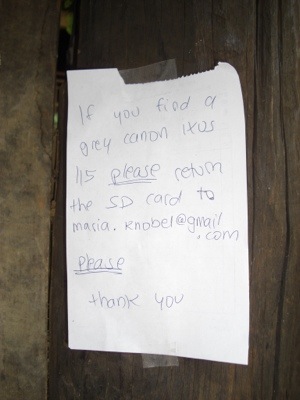 If you find a
grey canon IXUS
115 please return
the SD card to
masia.knobel@gmail
.com
Please
thank you